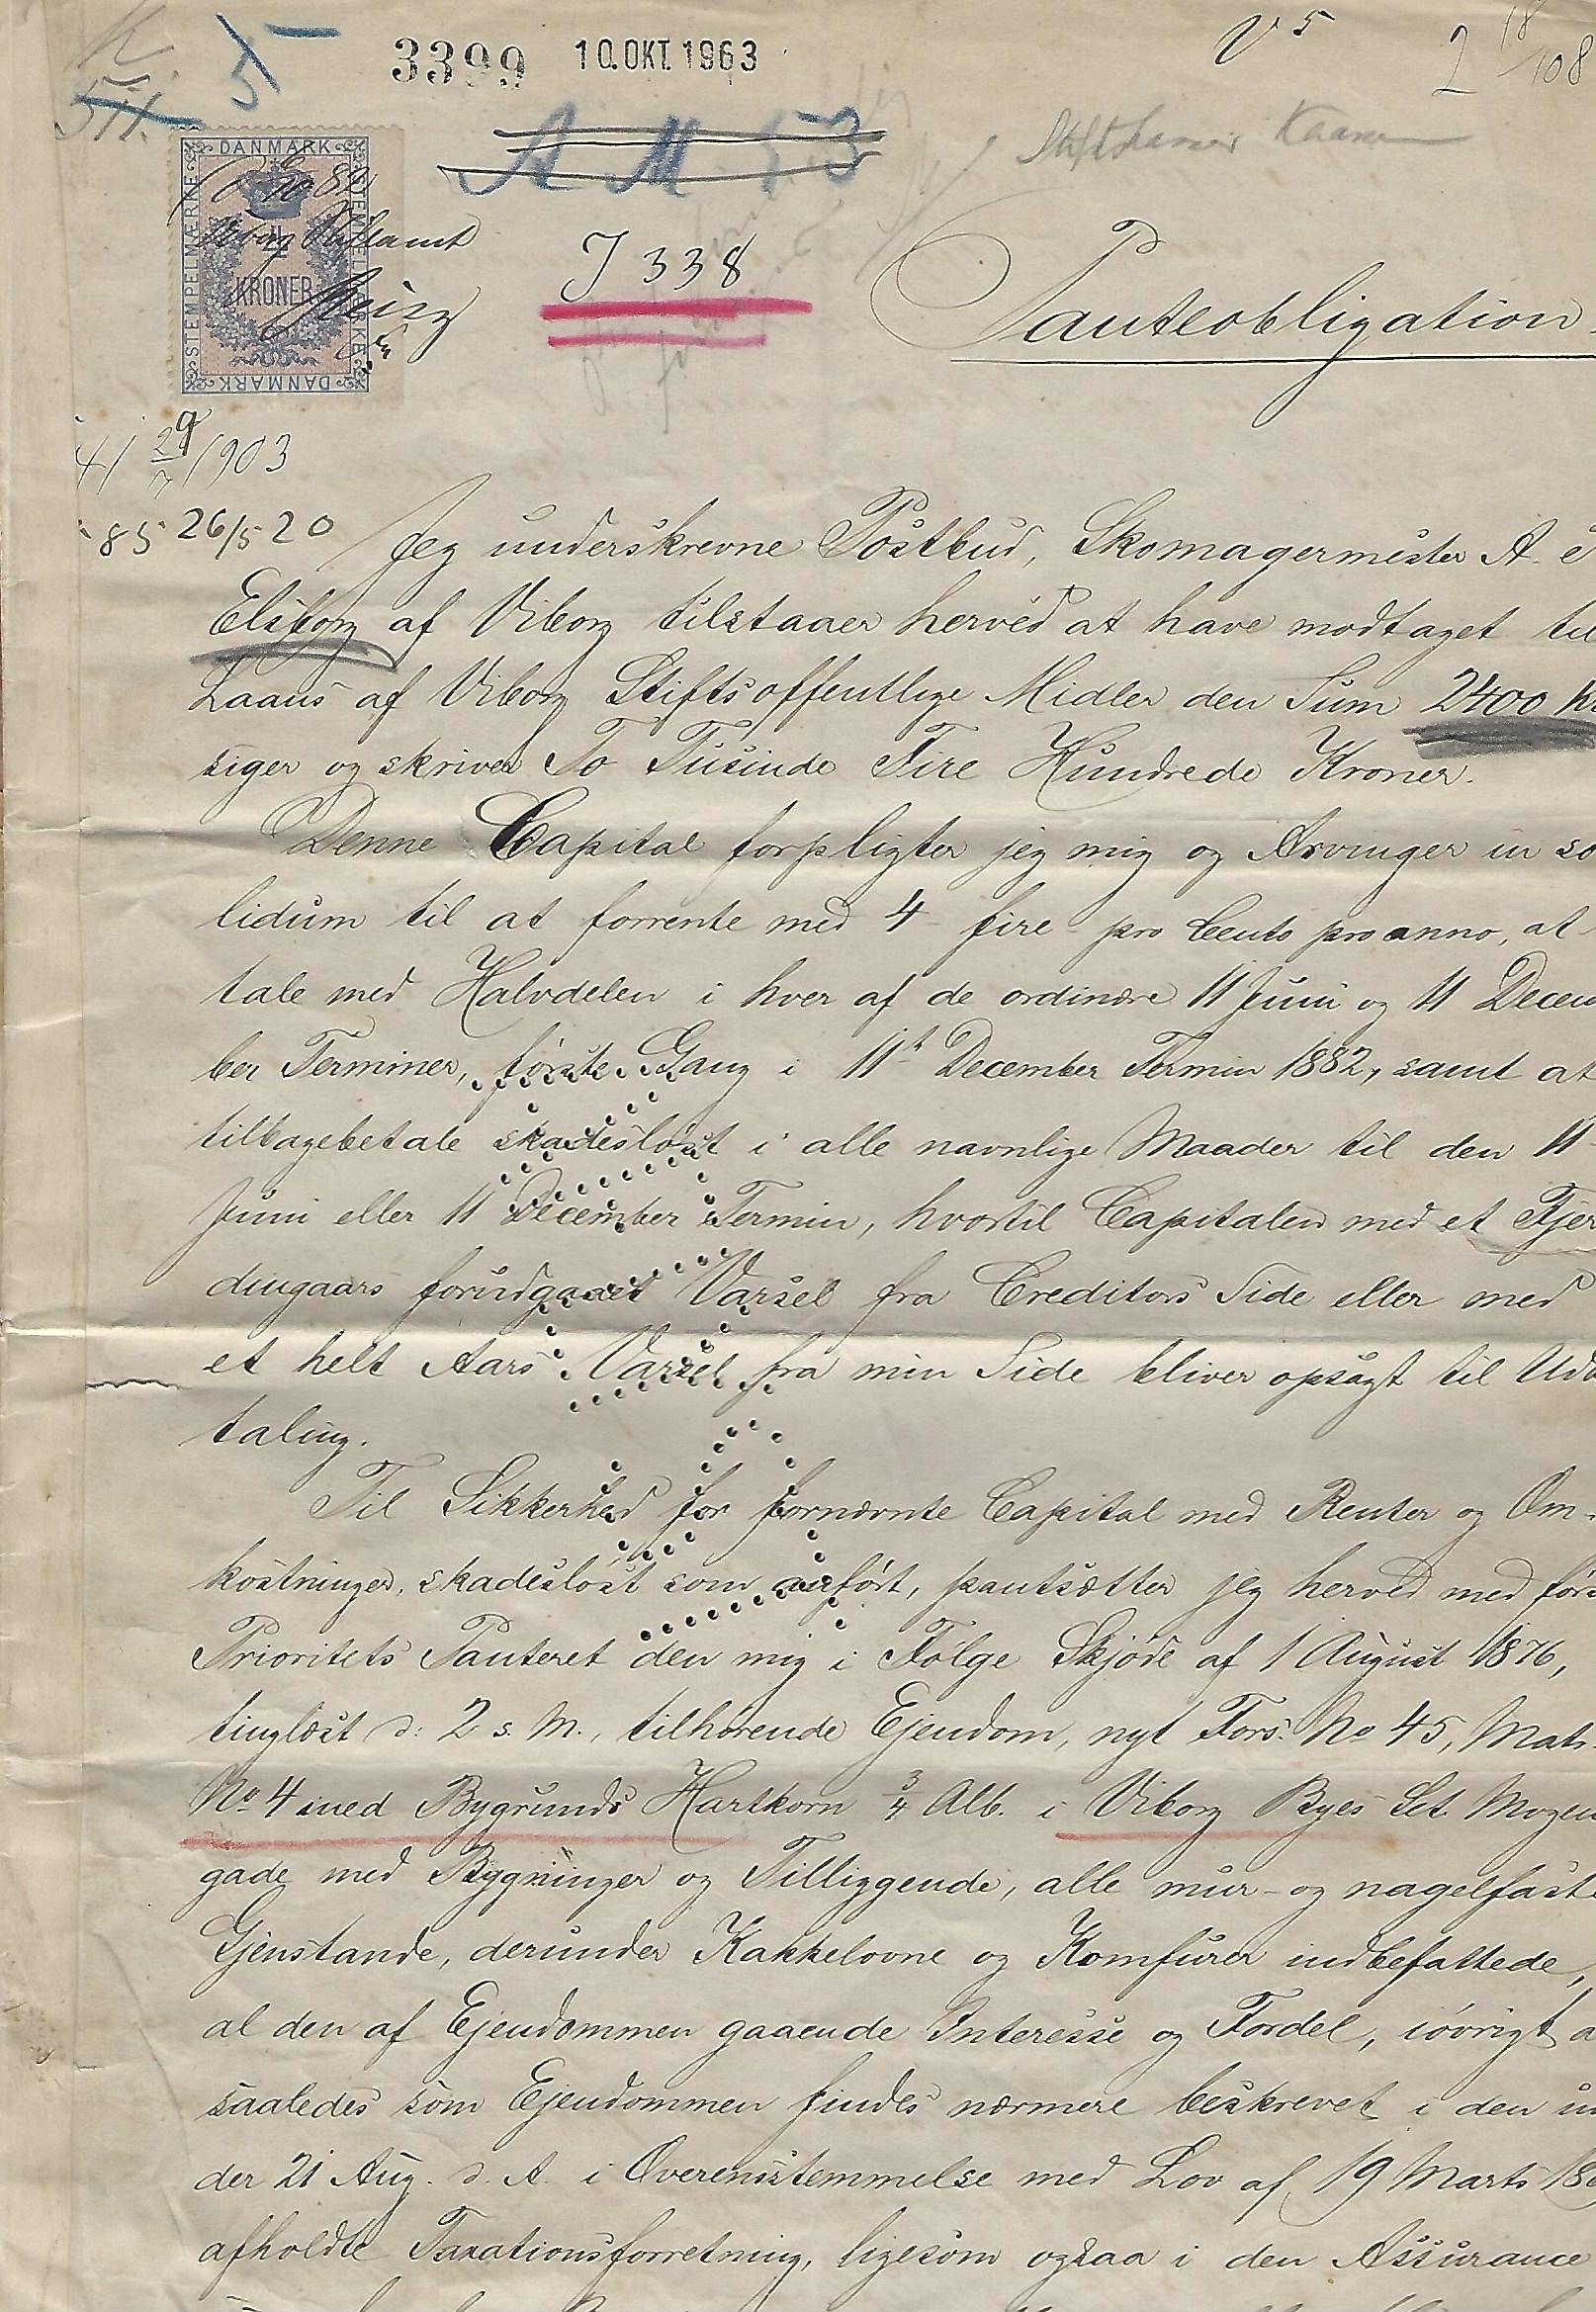 5
3399 10. OKT. 1963
V 5
2 18/108
A M 53
J 338
DANMARK
STEMPELMÆRKE
4
KRONER
STEMPELMÆRKE
DANMARK
Panteobligation
29/7 1903
85 26/5 20
Jeg underskrevne Postbud, Skomagermester A.
Elsborg af Viborg tilstaaer herved at have modtaget til
Laans af Viborg Stifts offentlige Midler den Sum 2400 Kr
siger og skriver To Tusinde Fire Hundrede Kroner.
Denne Capital forpligter jeg mig og Arvinger in so
lidum til at forrente med 4 fire pro Cento pro anno, at
tale med Halvdelen i hver af de ordinære 11 Juni og 11 Decem
ber Terminer, første Gang i 11te December Termin 1882, samt at
tilbagebetale skadesløst i alle navnlige Maader til den 11
Juni eller 11 December Termin, hvortil Capitalen med et Fjer
dingaars forudgaaet Varsel fra Creditors Side eller med
et helt Aars Varsel fra min Side bliver opsagt til Udb
taling.
Til Sikkerhed for fornævnte Capital med Renter og Om-
kostninger, skadesløst som anført, pantsætter jeg herved med førs
Prioritets Panteret den mig i Følge Skjøde af 1 August 1876,
tinglæst d: 2 s. M., tilhørende Ejendom, nyt Fors: No 45, Matr.
No 4 med Bygrunds Hartkorn 3/4 Alb. i Viborg Byes Sct. Mogens
gade med Bygninger og Tilliggende, alle mur- og nagelfaste
Gjenstande, derunder Kakkelovne og Komfurer indbefattede,
al den af Ejendommen gaaende Interesse og Fordel, iøvrigt a
saaledes som Ejendommen findes nærmere beskrevet i den un
der 21 Aug. d. A. i Overensstemmelse med Lov af 19 Marts 18
afholdte Taxationsforretning, ligesom ogsaa i den Assurance